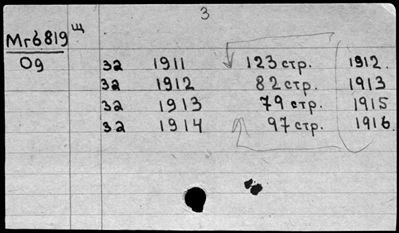 3
Мгб819 щ
Од за 1911 123 стр. 1912.
за 1912 82 стр. 1913
за 1913 79 стр. 1915
за 1914 97 стр. 1916.